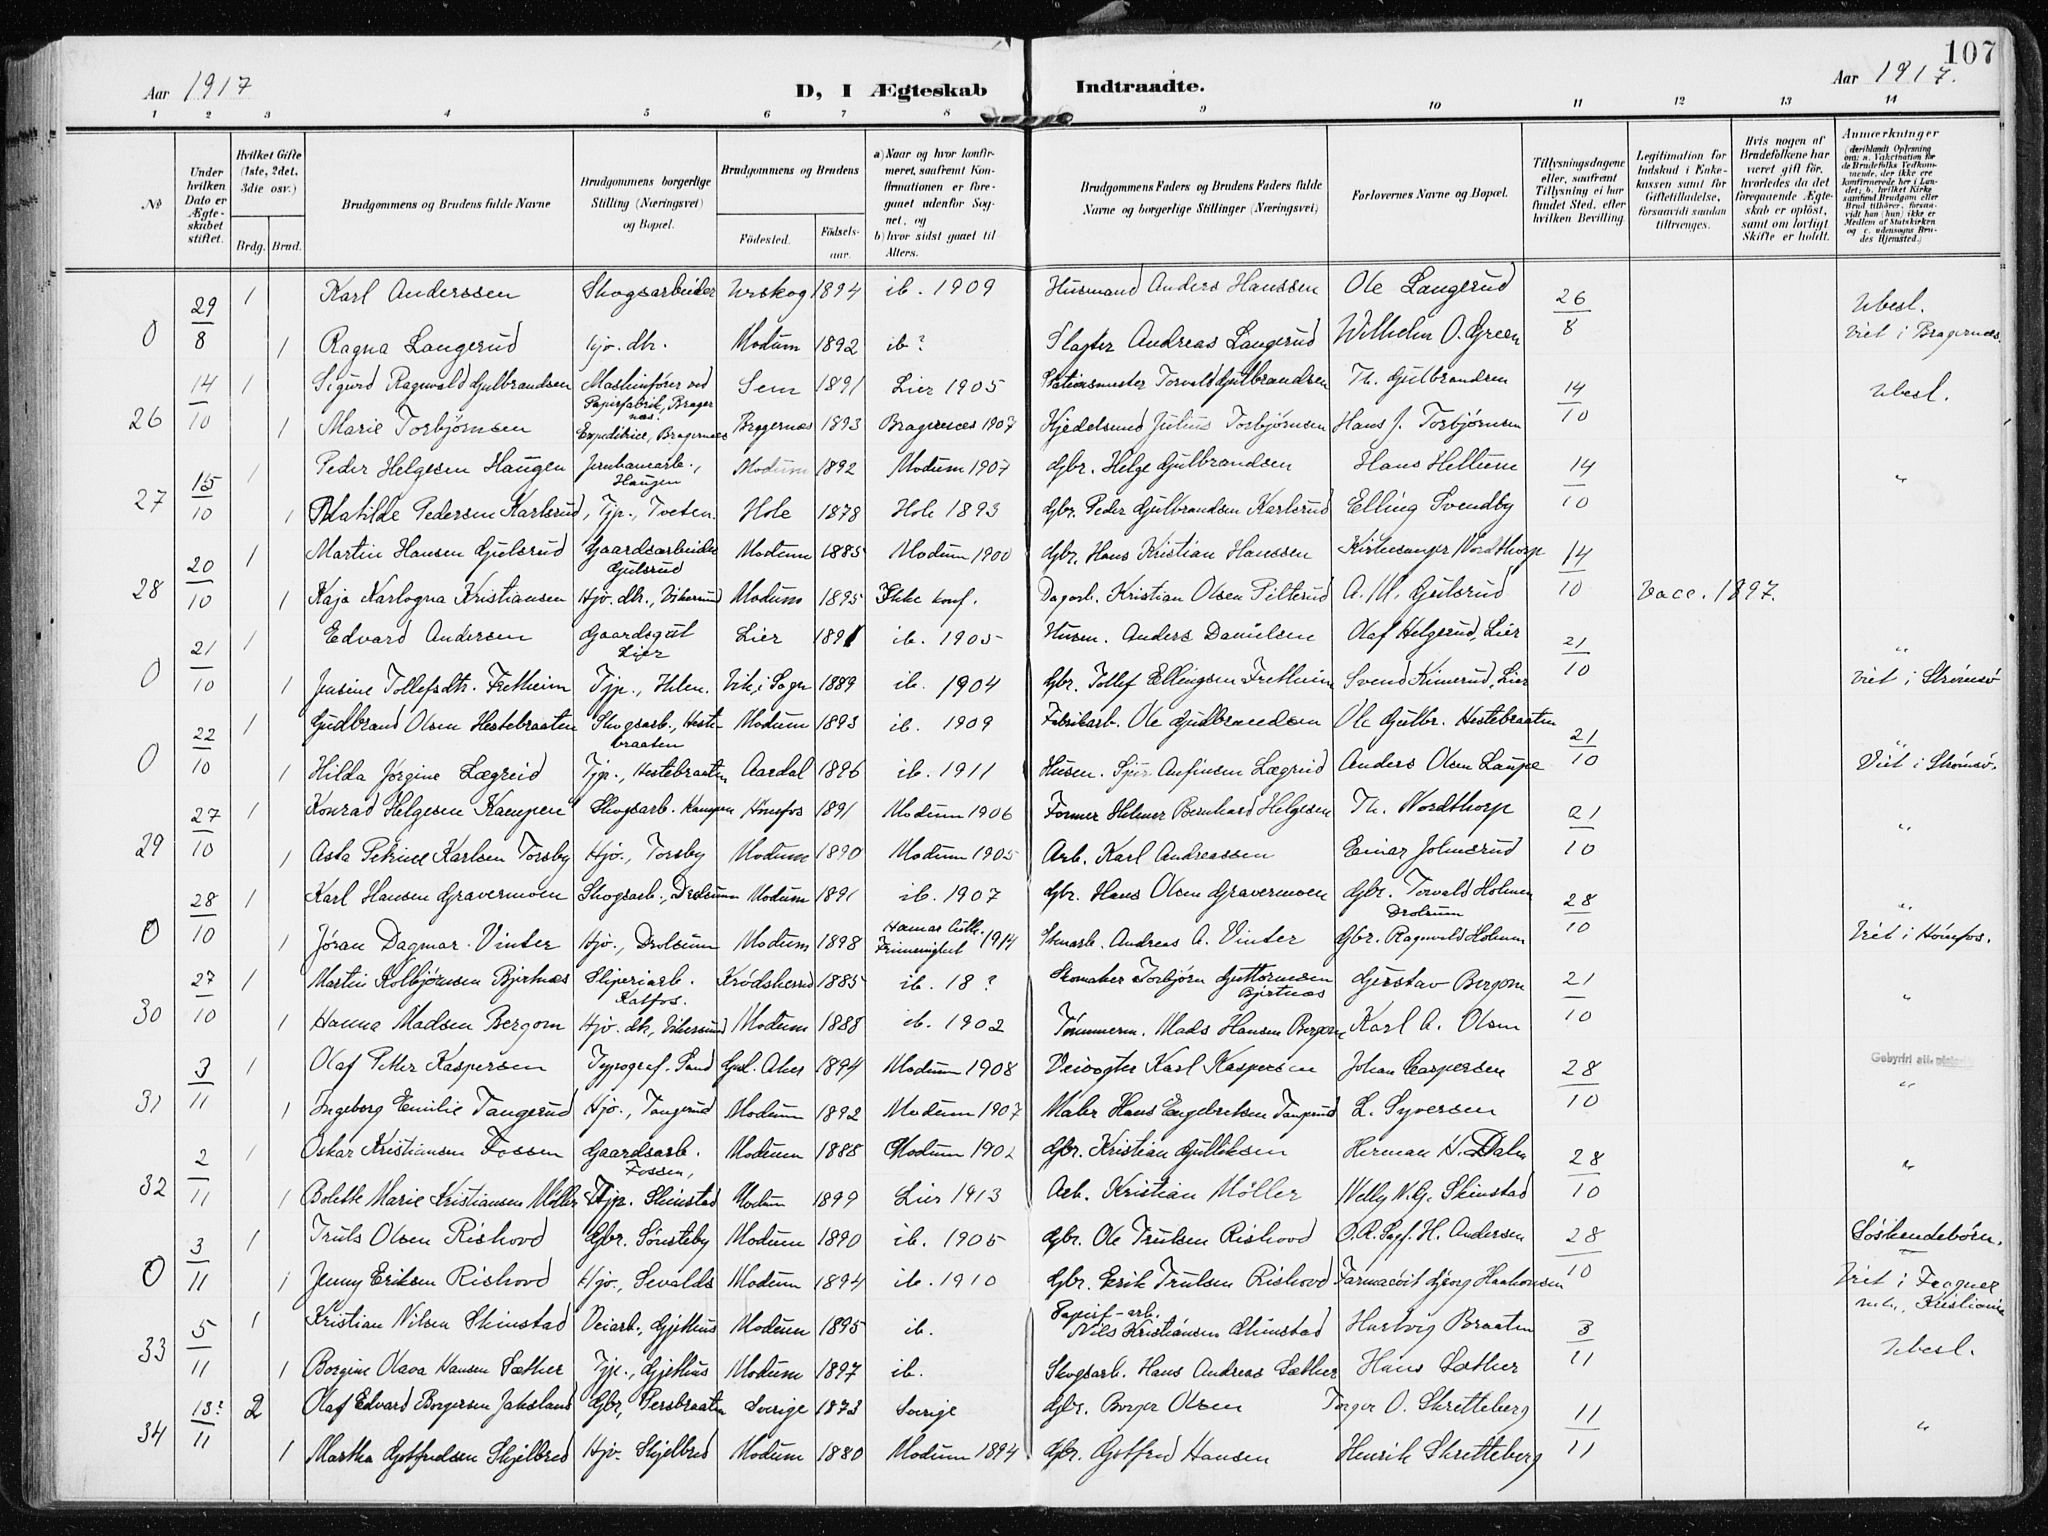 107
Aar 1917
D, I Ægteskab Indtraadte.
Aar 1917.
1 2 3 4 5 6 7 8 9 10 11 12 13 14
No
Under hvilken Dato er Ægteskabet stiftet.
Hvilket Gifte (1ste, 2det, 3die osv.)
Brdg. Brud.
Brudgommens og Brudens fulde Navne
Brudgommens borgerlige Stilling (Næringsvei) og Bopæl.
Brudgommens og Brudens
Fødested. Fødselsaar.
a) Naar og hvor konfirmeret, saafremt Konfirmationen er foregaaet udenfor Sognet, og
b) hvor sidst gaaet til Alters.
Brudgommens Faders og Brudens Faders fulde Navne og borgerlige Stillinger (Næringsvei)
Forlovernes Navne og Bopæl.
Tillysningsdagene eller, saafremt Tillysning ei har fundet Sted, efter hvilken Bevilling.
Legitimation for Indskud i Enkekassen samt for Giftetilladelse, forsaavidt saadan tiltrænges.
Hvis nogen af Brudefolkene har været gift før, hvorledes da det foregaaende Ægteskab er opløst, samt om lovligt Skifte er holdt.
Anmærkninger (deriblandt Oplysning om: a. Vakcination for de Brudefolks Vedkommende, der ikke ere konfirmerede her i Landet; b. hvilket Kirkesamfund Brudgom eller Brud tilhører, forsaavidt han (hun) ikke er Medlem af Statskirken og c. udensogns Brudes Hjemsted.)
29/8 1 Karl Anderssen Skogsarbeider Urskog 1894 ib. 1909 Husmand Anders Hanssen Ole Langerud 26/8 Ubesl.
0 1 Ragna Langerud Hjv. dtr. Modum 1892 ib? Slagter Andreas Langerud Wilhelm O. Green Viet i Bragernæs
14/10 1 Sigurd Ragnvald Gulbrandsen Maskinfører ved Papirfabrik, Bragernæs. Sem 1891 Lier 1905 Stationsmester Torvald Gulbrandsen Th. Gulbrandsen 14/10 Ubesl.
26 1 Marie Torbjørnsen Expeditrice, Bragernæs Bragernæs 1893 Bragernæs 1907 Kjedelsmed Julius Torbjørnsen Hans J. Torbjørnsen
15/10 1 Peder Helgesen Haugen Jernbanearb., Haugen Modum 1892 Modum 1907 Gbr. Helge Gulbrandsen Hans Hellum 14/10 "
27 1 Matilde Pedersen Karlsrud, Tjp., Tveten. Hole 1878 Hole 1893 Gbr. Peder Gulbrandsen Karlsrud Elling Svendby
20/10 1 Martin Hansen Gulsrud Gaardsarbeider Gulsrud Modum 1885 Modum 1900 Gbr. Hans Kristian Hanssen Kirkesanger Nordthorp 14/10
28 1 Kaja Karlogna Kristiansen Hjv. dtr., Vikersund Modum 1895 Ikke konf. Dagarb. Kristian Olsen Pilterud A. M. Gulsrud Vacc. 1897.
21/10 1 Edvard Andersen Gaardsgut Lier Lier 1891 ib. 1905 Husm. Anders Danielsen Olaf Helgerud, Lier 21/10 "
0 1 Jensine Tollefsdtr. Fretheim Tjp., Hilen. Vik, i Sogn 1889 ib. 1904 Gbr. Tollef Ellingsen Fretheim Svend Kinnerud, Lier Viet i Strømsø
22/10 1 Gudbrand Olsen Hestebraaten Skogsarb., Hestebraaten Modum 1893 ib. 1909 Fabrikarb. Ole Gudbrandsen Ole Gulbr. Hestebraaten 21/10 "
0 1 Hilda Jørgine Lægreid Tjp., Hestebraaten Aardal 1896 ib. 1911 Husm. Sjur Anfinsen Lægreid Anders Olsen Laupe Viet i Strømsø.
27/10 1 Konrad Helgesen Kampen Skogsarb. Kampen, Hønefos 1891 Modum 1906 Former Helmer Bernhard Helgesen Th. Nordthorp 21/10 "
29 1 Asta Petrine Karlsen Torsby Hjv., Torsby Modum 1890 Modum 1905 Arb. Karl Andreassen Einar Johnsrud
28/10 1 Karl Hansen Gravermoen Skogsarb., Drolsum Modum 1891 ib. 1907 Gbr. Hans Olsen Gravermoen Gbr. Torvald Holmen Drolsum 28/10 "
0 1 Jøran Dagmar Vinter Hjv., Drolsum Modum 1898 Hamar luth. Frimenighet 1914 Stenarb. Andreas A. Vinter Gbr. Ragnvald Holmen Viet i Hønefos.
27/10 1 Martin Kolbjørnsen Bjertnæs Sliperiarb. Katfos. Krødsherred 1885 ib. 18? Skomaker Torbjørn Guttormsen Bjertnæs Gustav Bergom 21/10 "
30 1 Hanna Madsen Bergom Hjv. dtr, Vikersund Modum 1888 ib. 1902 Tømmerm. Mads Hansen Bergom Karl A. Olsen
3/11 1 Olaf Petter Kaspersen Typograf. Sand Gml. Aker 1894 Modum 1908 Veivogter Karl Kaspersen Johan Caspersen 28/10 Gebyrfri att. "
31 1 Ingeborg Emilie Tangerud Hjv., Tangerud Modum 1892 Modum 1907 Maler Hans Engebretsen Tangerud L. Syversen
2/11 1 Oskar Kristiansen Fossen Gaardsarb. Fossen, Modum 1888 Modum 1902 Gbr. Kristian Gulliksen Herman H. Dalen 28/10 "
32 1 Bolette Marie Kristiansen Møller Tjp. Skinstad Modum 1899 Lier 1913 Arb. Kristian Møller Welly N. G. Skinstad
3/11 1 Truls Olsen Rishovd Gbr. Sønsteby Modum 1890 ib. 1905 Gbr. Ole Trulsen Rishovd O.R.Sagf. H. Andersen 28/10 Søskendebørn.
0 1 Jenny Eriksen Rishovd Hjv., Sevalds Modum 1894 ib. 1910 Gbr. Erik Trulsen Rishovd Farmacøit Georg Haakonsen Viet i Frogner mh., Kristiania
5/11 1 Kristian Nilsen Skinstad Veiarb., Gjethus Modum 1895 ib. Papirf-arb. Nils Kristiansen Skinstad Hartvig Braaten 3/11 Ubesl.
33 1 Borgine Olava Hansen Sæther Tjp., Gjethus Modum 1897 ib. Skogsarb. Hans Andreas Sæther Hans Sæther
13?/11 2 Olaf Edvard Borgersen Jaksland Gbr, Persbraaten Sverige 1873 Sverige Gbr. Borger Olsen Torger O. Skretteberg 11/11 "
34 1 Martha Gotfredsen Skjelbred Hjv. Skjelbred Modum 1880 Modum 1894 Gbr. Gotfred Hansen Henrik Skretteberg